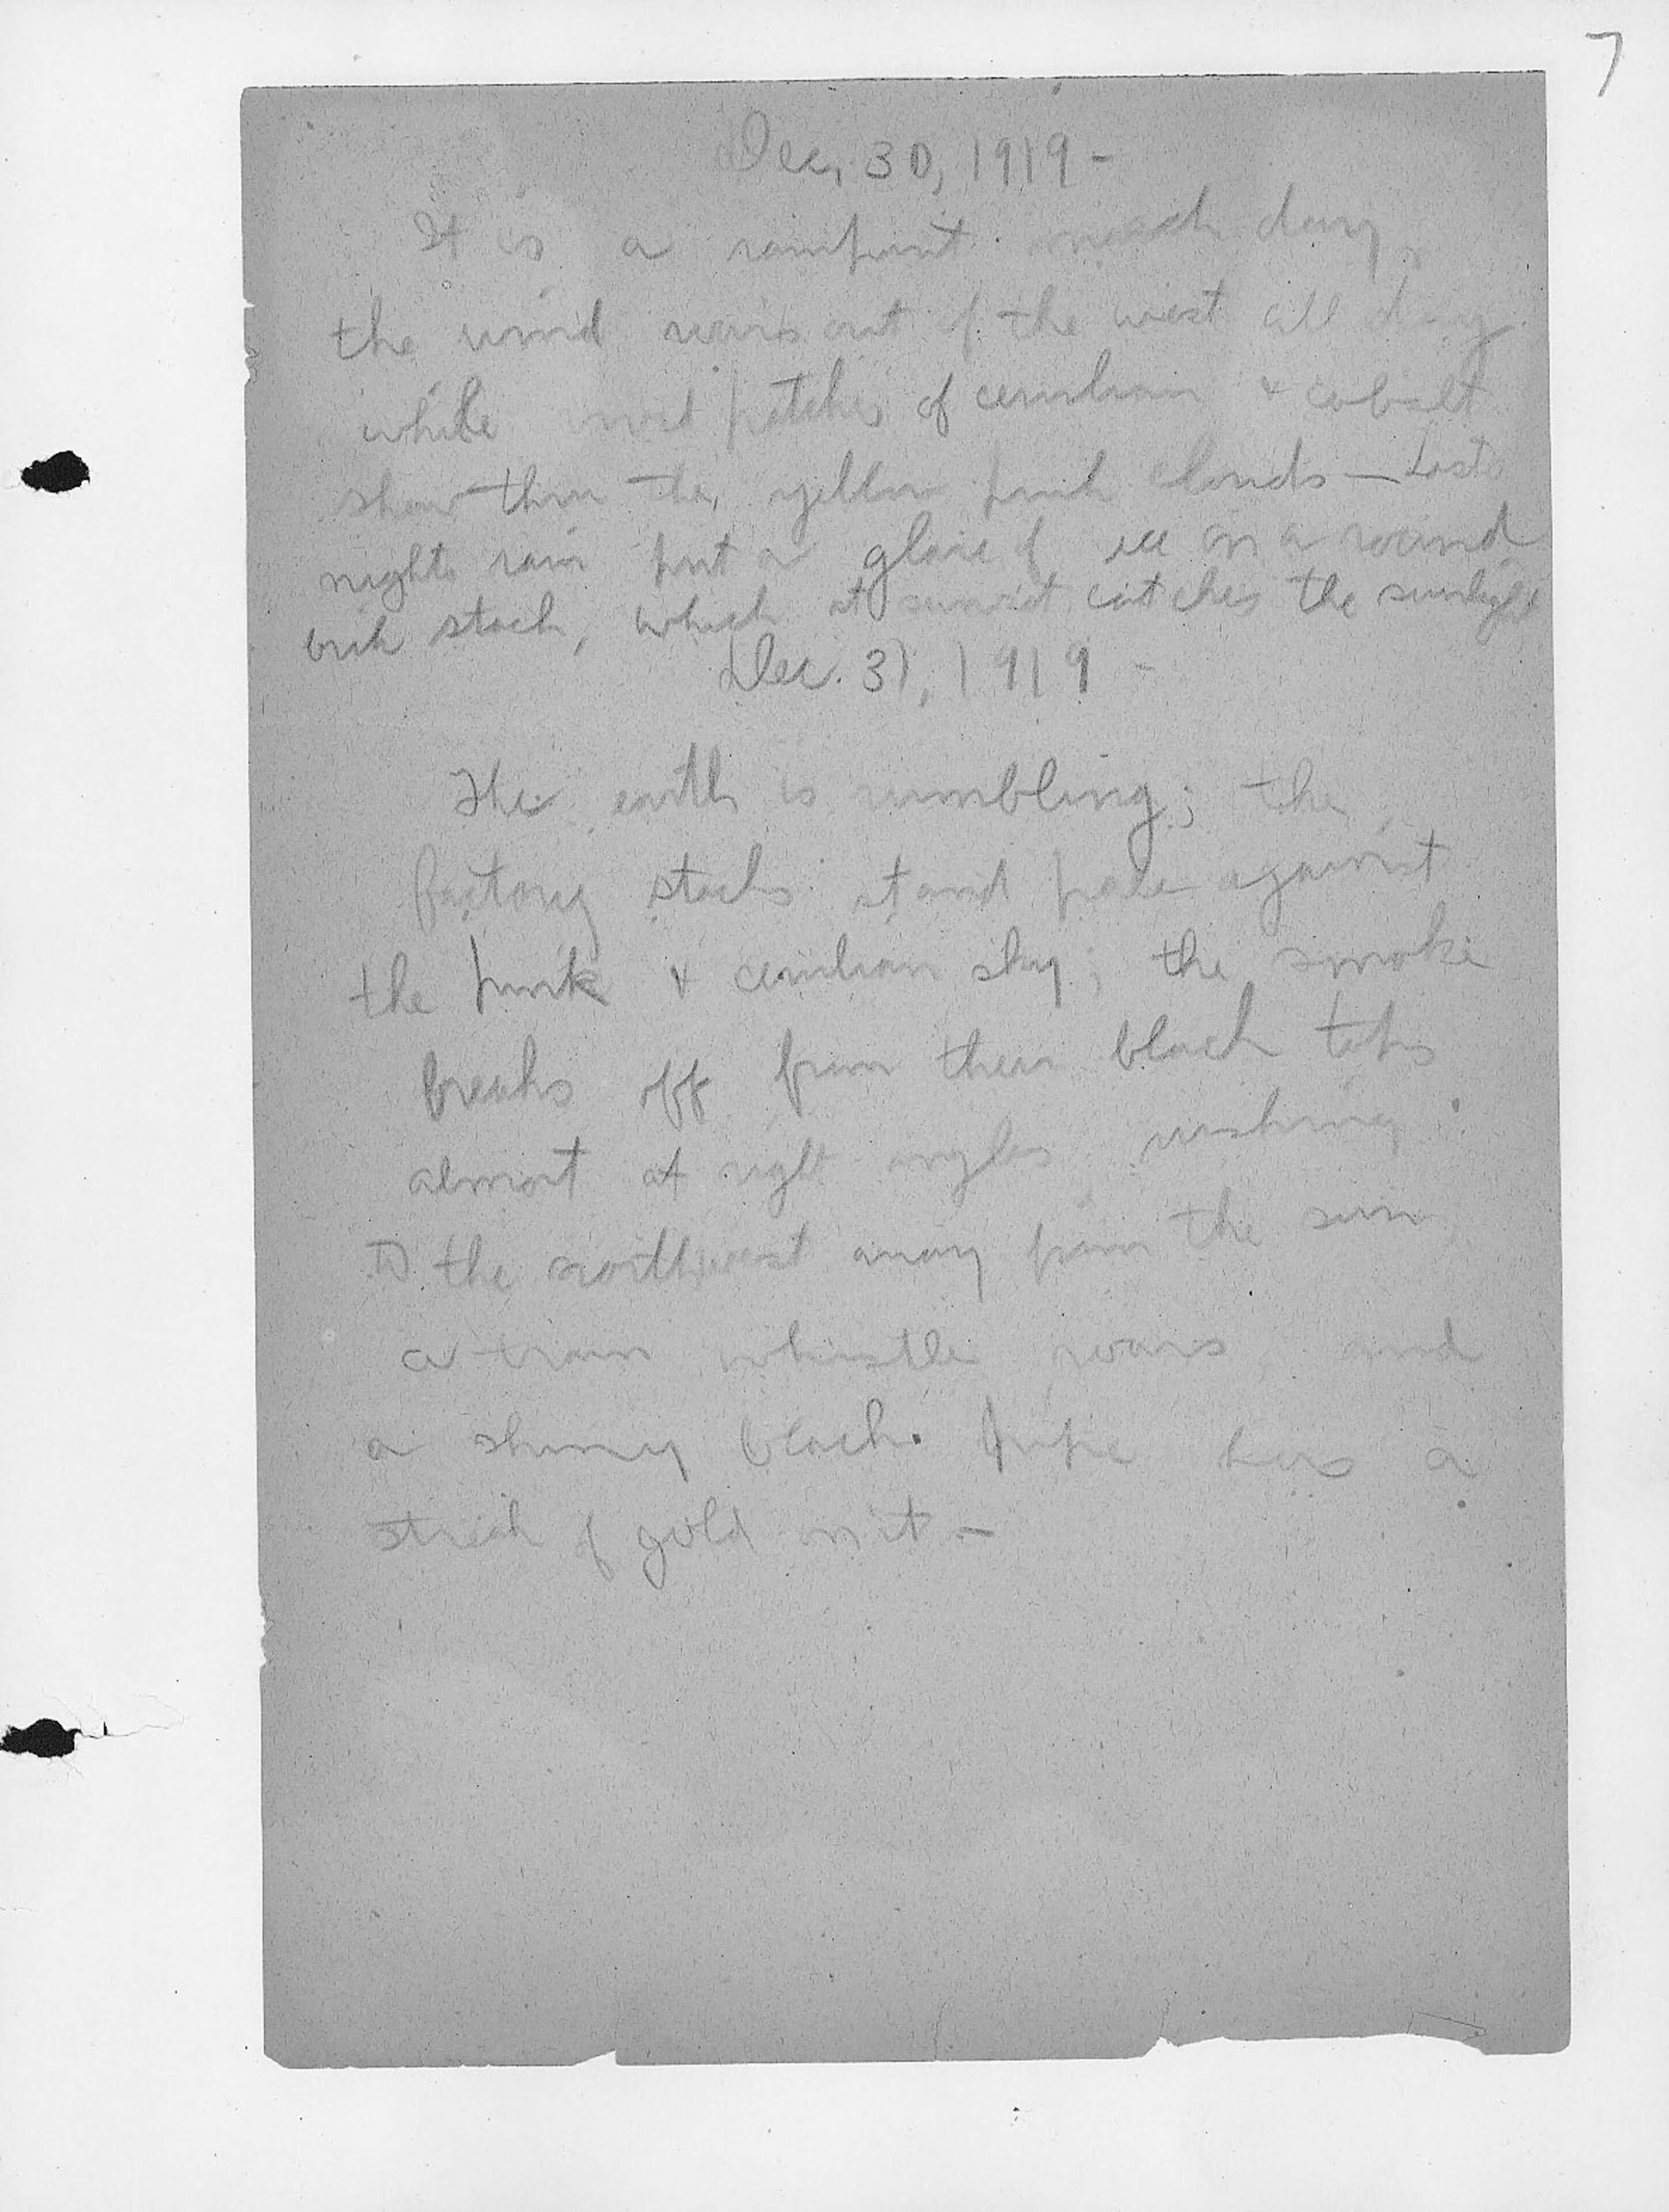 7
Dec. 30, 1919 -
It is a rampant March day,
the wind roars out of the west all day
while vivid patches of cerulean & cobalt
show thru the yellow pink clouds — Last
nights rain put a glaze of ice on a round
brick stack, which at sunset catches the sunlight
Dec. 31, 1919 -
The earth is rumbling; the
factory stacks stand pale against
the pink & cerulean sky; the smoke
breaks off from their black tops
almost at right angles rushing
to the northwest away from the sun,
a train whistle roars and
a shiny black pipe has a
streak of gold on it —